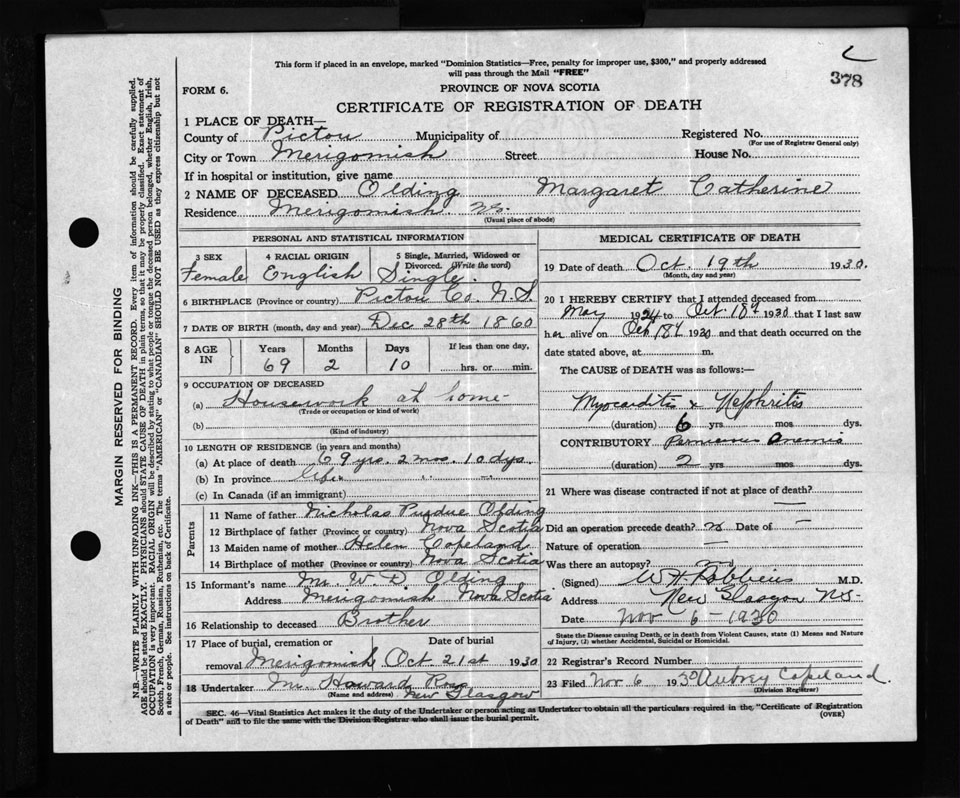 This form if placed in an envelope, marked "Dominion Statistics—Free, penalty for improper use, $300," and properly addressed
will pass through the Mail "FREE"
378
FORM 6.
PROVINCE OF NOVA SCOTIA
CERTIFICATE OF REGISTRATION OF DEATH
1 PLACE OF DEATH—
County of Pictou Municipality of Registered No.
(For use of Registrar General only)
City or Town Merigomish Street House No.
If in hospital or institution, give name
2 NAME OF DECEASED Olding Margaret Catherine
Residence Merigomish NS.
(Usual place of abode)
PERSONAL AND STATISTICAL INFORMATION
3 SEX 4 RACIAL ORIGIN 5 Single, Married, Widowed or Divorced. (Write the word)
Female English Single.
6 BIRTHPLACE (Province or country) Pictou Co. N.S.
7 DATE OF BIRTH (month, day and year) Dec 28th 1860
8 AGE IN Years Months Days If less than one day,
69 2 10 hrs. or min.
9 OCCUPATION OF DECEASED
(a) Housework at home
(Trade or occupation or kind of work)
(b)
(Kind of industry)
10 LENGTH OF RESIDENCE (in years and months)
(a) At place of death 69 yrs. 2 mos. 10 dys.
(b) In province life
(c) In Canada (if an immigrant)
Parents
11 Name of father Nicholas Purdue Olding
12 Birthplace of father (Province or country) Nova Scotia
13 Maiden name of mother Helen Copeland
14 Birthplace of mother (Province or country) Nova Scotia
15 Informant's name Mr. W. D. Olding
Address Merigomish Nova Scotia
16 Relationship to deceased Brother
17 Place of burial, cremation or removal Date of burial
Merigomish Oct 21st 1930
18 Undertaker Mr. Howard Ross
(Name and address) New Glasgow
MEDICAL CERTIFICATE OF DEATH
19 Date of death Oct. 19th 1930.
(Month, day and year)
20 I HEREBY CERTIFY that I attended deceased from
May 1924 to Oct. 18th 1930 that I last saw
her alive on Oct 18th 1930 and that death occurred on the
date stated above, at m.
The CAUSE of DEATH was as follows:—
Myocarditis & Nephritis
(duration) 6 yrs. mos. dys.
CONTRIBUTORY Pernicious Anemia
(duration) 2 yrs. mos. dys.
21 Where was disease contracted if not at place of death?
—
Did an operation precede death? no Date of —
Nature of operation —
Was there an autopsy? no
(Signed) W H Robbins M.D.
Address New Glasgow N.S.
Date Nov 6 - 1930
State the Disease causing Death, or in death from Violent Causes, state (1) Means and Nature
of Injury, (2) whether Accidental, Suicidal or Homicidal.
22 Registrar's Record Number
23 Filed Nov 6 1930 Aubrey Copeland.
(Division Registrar)
SEC. 46—Vital Statistics Act makes it the duty of the Undertaker or person acting as Undertaker to obtain all the particulars required in the "Certificate of Registration
of Death" and to file the same with the Division Registrar who shall issue the burial permit. (OVER)
MARGIN RESERVED FOR BINDING
N.B.—WRITE PLAINLY WITH UNFADING INK—THIS IS A PERMANENT RECORD. Every item of information should be carefully supplied.
AGE should be stated EXACTLY. PHYSICIANS should STATE CAUSE OF DEATH in plain terms, so that it may be properly classified. Exact statement of
OCCUPATION is very important. RACIAL ORIGIN will be described by stating to what people or tongue the deceased person belonged, whether English, Irish,
Scotch, French, German, Russian, Ruthenian, etc. The terms "AMERICAN" or "CANADIAN" SHOULD NOT BE USED as they express citizenship but not
a race or people. See instructions on back of Certificate.